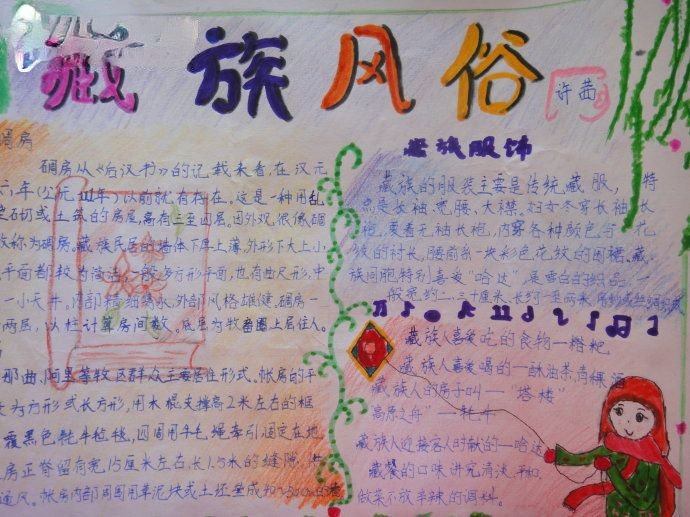 藏族风俗
许茜
碉房
碉房从《后汉书》的记载来看,在汉元
六年(公元111年)以前就有存在。这是一种用乱
石砌或土筑的房屋,高有三至四层。因外观很像碉
故称为碉房。藏族民居的墙体下厚上薄,外形下大上小,
平面都较为简洁,一般多方形平面,也有曲尺形,中
一小天井。内部精细隽永,外部风格雄健,碉房一
两层,以柱计算房间数。底层为牧畜圈上层住人。
那曲、阿里等牧区群众主要居住形式。帐房的平
为方形或长方形,用木棍支撑高2米左右的框
覆黑色牦牛毡毯,四周用牛毛绳牵引固定在地
房正脊留有宽15厘米左右,长1.5米的缝隙,
通风。帐房内部周围用草泥块或土坯垒成40~50cm的
藏族服饰
藏族的服装主要是传统藏服,特
点是长袖、宽腰、大襟。妇女冬穿长袖长
袍,夏着无袖长袍,内穿各种颜色与花
纹的衬衣,腰前系一块彩色花纹的围裙。藏
族同胞特别喜爱“哈达”,是雪白的织品,一
般宽约二、三十厘米、长约一至两米,用纱或丝绸织成
藏族人喜爱吃的食物—糌粑
藏族人喜爱喝的—酥油茶,青稞酒
藏族人的房子叫—“塔楼”
“高原之舟”—牦牛
藏族人迎接客人时献的—哈达
藏餐的口味讲究清淡、平和,
做菜不放辛辣的调料。